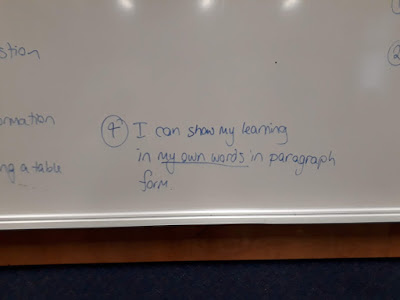 stion
ormation
ng a table
4 I can show my learning
in my own words in paragraph
form.
2